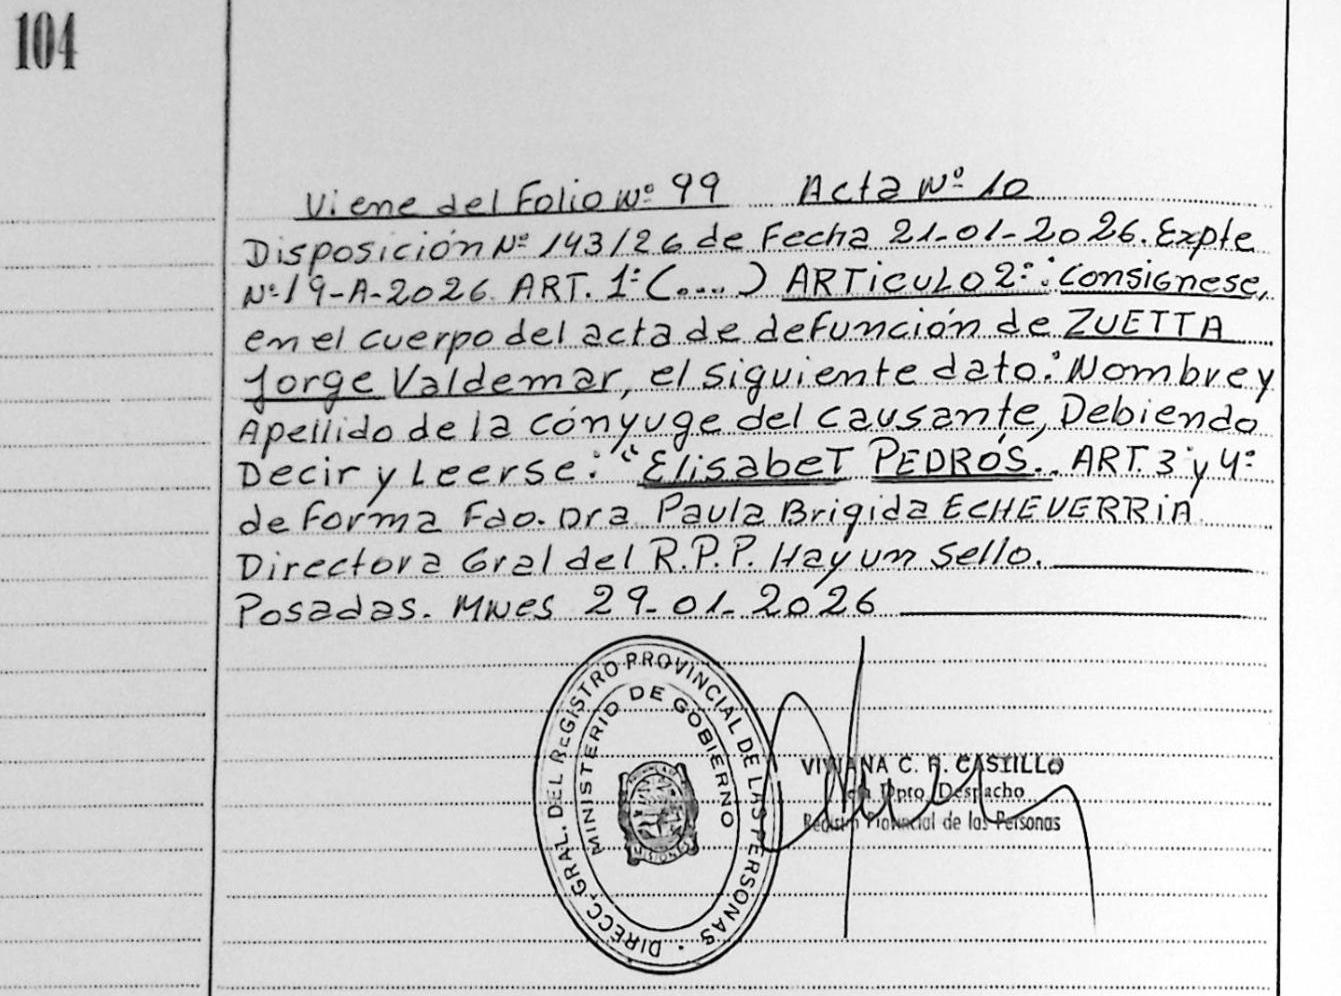 104
Viene del Folio Nº 99 Acta Nº 10
Disposición Nº 143/26 de Fecha 21-01-2026. Expte
Nº 19-A-2026. ART. 1º (....) ARTICULO 2º: Consignese,
en el cuerpo del acta de defunción de ZUETTA
Jorge Valdemar, el siguiente dato: Nombre y
Apellido de la cónyuge del causante, Debiendo
Decir y Leerse: "Elisabet PEDRÓS. ART. 3 y 4º
de Forma Fdo. Dra Paula Brigida ECHEVERRIA
Directora Gral del R.P.P. Hay un Sello.
Posadas. MNES 29-01-2026
DIRECC. GRAL. DEL REGISTRO PROVINCIAL DE LAS PERSONAS
MINISTERIO DE GOBIERNO
MISIONES
VIVIANA C. R. CASTILLO
Dpto. Despacho
Registro Provincial de las Personas